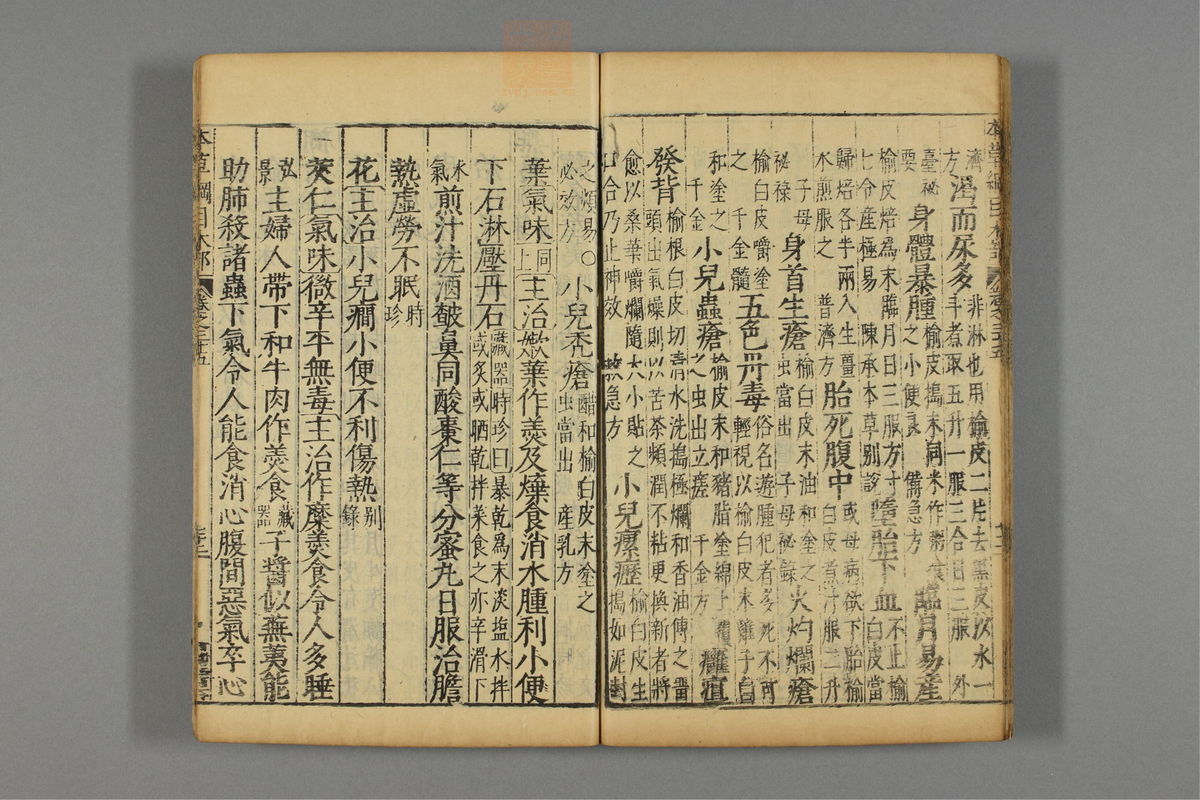 濟方
溼而尿多 非淋也用榆皮二片去黑皮以水一斗煮取五升一服三合日三服 外臺秘要
身體暴腫 榆皮搗末同米作粥食之小便良 備急方
臨月易產 榆皮焙爲末臨月日三服方寸匕令產極易 陳承本草别說
墮胎下血 不止榆白皮當歸焙各半兩入生薑水煎服之 普濟方
胎死腹中 或母病欲下胎榆白皮煮汁服二升 子母秘祿
身首生瘡 榆白皮末油和塗之虫當出 子母秘錄
火灼爛瘡 榆白皮嚼塗之 千金髓
五色丹毒 俗名遊腫犯者多死不可輕視以榆白皮末雞子白和塗之 千金
小兒蟲瘡 榆皮末和豬脂塗綿上覆之虫出立瘥 千金方
癰疽發背 榆根白皮切清水洗搗極爛和香油傅之畱頭出氣燥則以苦茶頻潤不粘更換新者將愈以桑葉嚼爛隨大小貼之口合乃止神效 救急方
小兒瘰癧 榆白皮生搗如泥封之頻易 必效方
○小兒禿瘡 醋和榆白皮末塗之虫當出 產乳方
葉氣味 同上 主治 嫩葉作羹及煠食消水腫利小便
下石淋壓丹石 藏器 時珍曰暴乾爲末淡塩水拌或炙或晒乾拌菜食之亦辛滑下水氣
煎汁洗酒皶鼻同酸棗仁等分蜜丸日服治膽
熱虛勞不眠 時珍
花主治小兒癎小便不利傷熱 别錄
莢仁氣味微辛平無毒主治作糜羹食令人多睡
弘景 主婦人帶下和牛肉作羹食 藏器 子醬似蕪荑能
助肺殺諸蟲下氣令人能食消心腹間惡氣卒心
本草綱目木部
卷之三十五